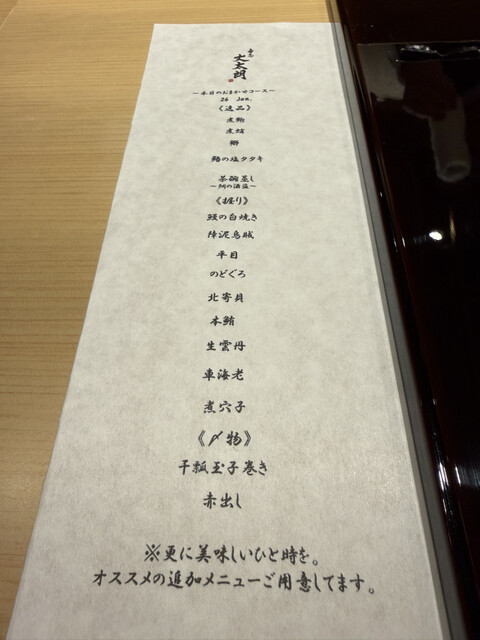 文太朗
～本日のおまかせコース～
26 Jan.
《逸品》
煮鮑
煮蛸
鰤
鰆の塩タタキ
茶碗蒸し
《握り》
鰻の白焼き
障泥烏賊
平目
のどぐろ
北寄貝
本鮪
生雲丹
車海老
煮穴子
《〆物》
干瓢玉子巻き
赤出し
※更に美味しいひと時を。
オススメの追加メニューご用意してます。